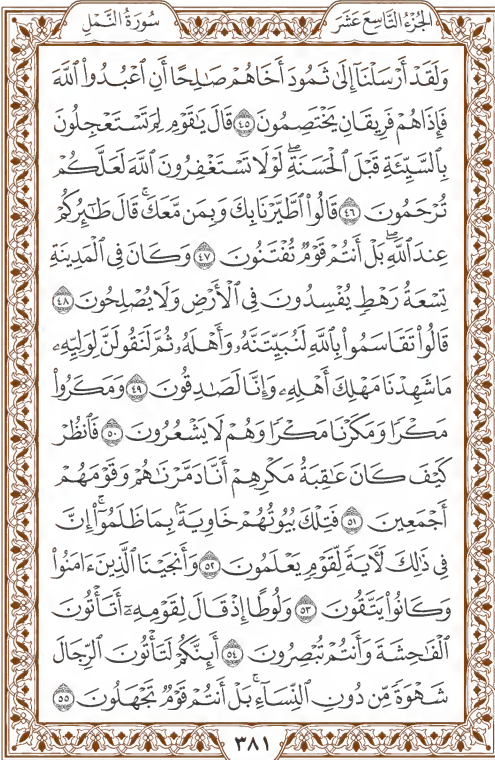 الجزء التاسع عشر
سورة النمل
وَلَقَدْ أَرْسَلْنَآ إِلَىٰ ثَمُودَ أَخَاهُمْ صَٰلِحًا أَنِ ٱعْبُدُوا۟ ٱللَّهَ
فَإِذَا هُمْ فَرِيقَانِ يَخْتَصِمُونَ ٤٥ قَالَ يَٰقَوْمِ لِمَ تَسْتَعْجِلُونَ
بِٱلسَّيِّئَةِ قَبْلَ ٱلْحَسَنَةِ ۖ لَوْلَا تَسْتَغْفِرُونَ ٱللَّهَ لَعَلَّكُمْ
تُرْحَمُونَ ٤٦ قَالُوا۟ ٱطَّيَّرْنَا بِكَ وَبِمَن مَّعَكَ ۚ قَالَ طَٰٓئِرُكُمْ
عِندَ ٱللَّهِ ۖ بَلْ أَنتُمْ قَوْمٌ تُفْتَنُونَ ٤٧ وَكَانَ فِى ٱلْمَدِينَةِ
تِسْعَةُ رَهْطٍ يُفْسِدُونَ فِى ٱلْأَرْضِ وَلَا يُصْلِحُونَ ٤٨
قَالُوا۟ تَقَاسَمُوا۟ بِٱللَّهِ لَنُبَيِّتَنَّهُۥ وَأَهْلَهُۥ ثُمَّ لَنَقُولَنَّ لِوَلِيِّهِۦ
مَا شَهِدْنَا مَهْلِكَ أَهْلِهِۦ وَإِنَّا لَصَٰدِقُونَ ٤٩ وَمَكَرُوا۟
مَكْرًا وَمَكَرْنَا مَكْرًا وَهُمْ لَا يَشْعُرُونَ ٥٠ فَٱنظُرْ
كَيْفَ كَانَ عَٰقِبَةُ مَكْرِهِمْ أَنَّا دَمَّرْنَٰهُمْ وَقَوْمَهُمْ
أَجْمَعِينَ ٥١ فَتِلْكَ بُيُوتُهُمْ خَاوِيَةًۢ بِمَا ظَلَمُوٓا۟ ۗ إِنَّ
فِى ذَٰلِكَ لَءَايَةً لِّقَوْمٍ يَعْلَمُونَ ٥٢ وَأَنجَيْنَا ٱلَّذِينَ ءَامَنُوا۟
وَكَانُوا۟ يَتَّقُونَ ٥٣ وَلُوطًا إِذْ قَالَ لِقَوْمِهِۦٓ أَتَأْتُونَ
ٱلْفَٰحِشَةَ وَأَنتُمْ تُبْصِرُونَ ٥٤ أَئِنَّكُمْ لَتَأْتُونَ ٱلرِّجَالَ
شَهْوَةً مِّن دُونِ ٱلنِّسَآءِ ۚ بَلْ أَنتُمْ قَوْمٌ تَجْهَلُونَ ٥٥
٣٨١